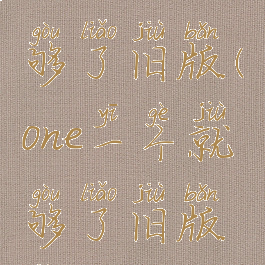 gòu liǎo jiù bǎn
够了旧版(
yī gè jiù
one一个就
gòu liǎo jiù bǎn
够了旧版